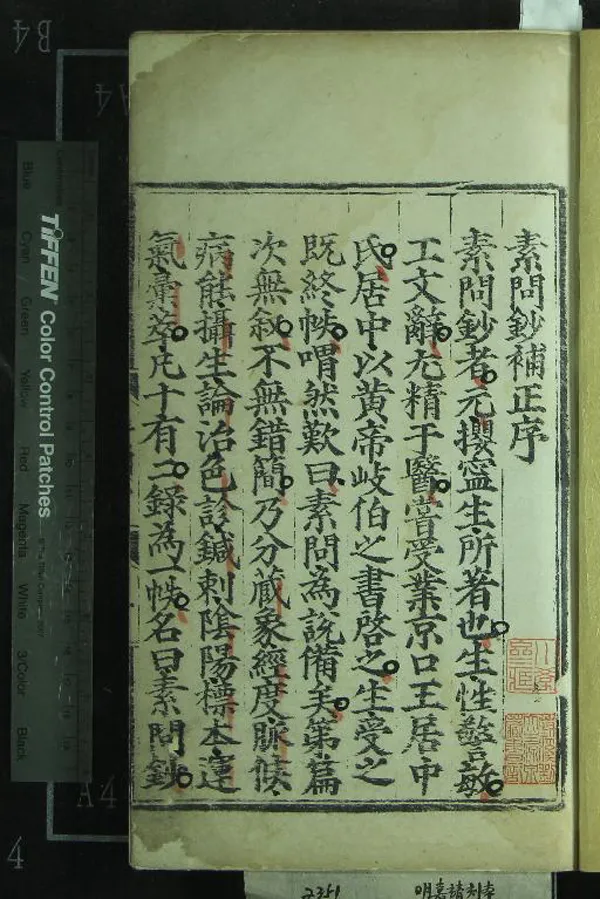 素問鈔補正序
素問鈔者元攖寧生所著也生性警敏
工文辭尤精于醫嘗受業京口王居中
氏居中以黄帝岐伯之書啓之生受之
既終帙喟然歎曰素問為説備矣第篇
次無叙不無錯簡乃分蔵象經度脉候
病能攝生論治色診鍼刺陰陽標本運
氣彚萃凡十有二録為一帙名曰素問鈔
TIFFEN Color Control Patches
Blue
Cyan
Green
Yellow
Red
Magenta
White
3/Color
Black
B4
A4
A4
4